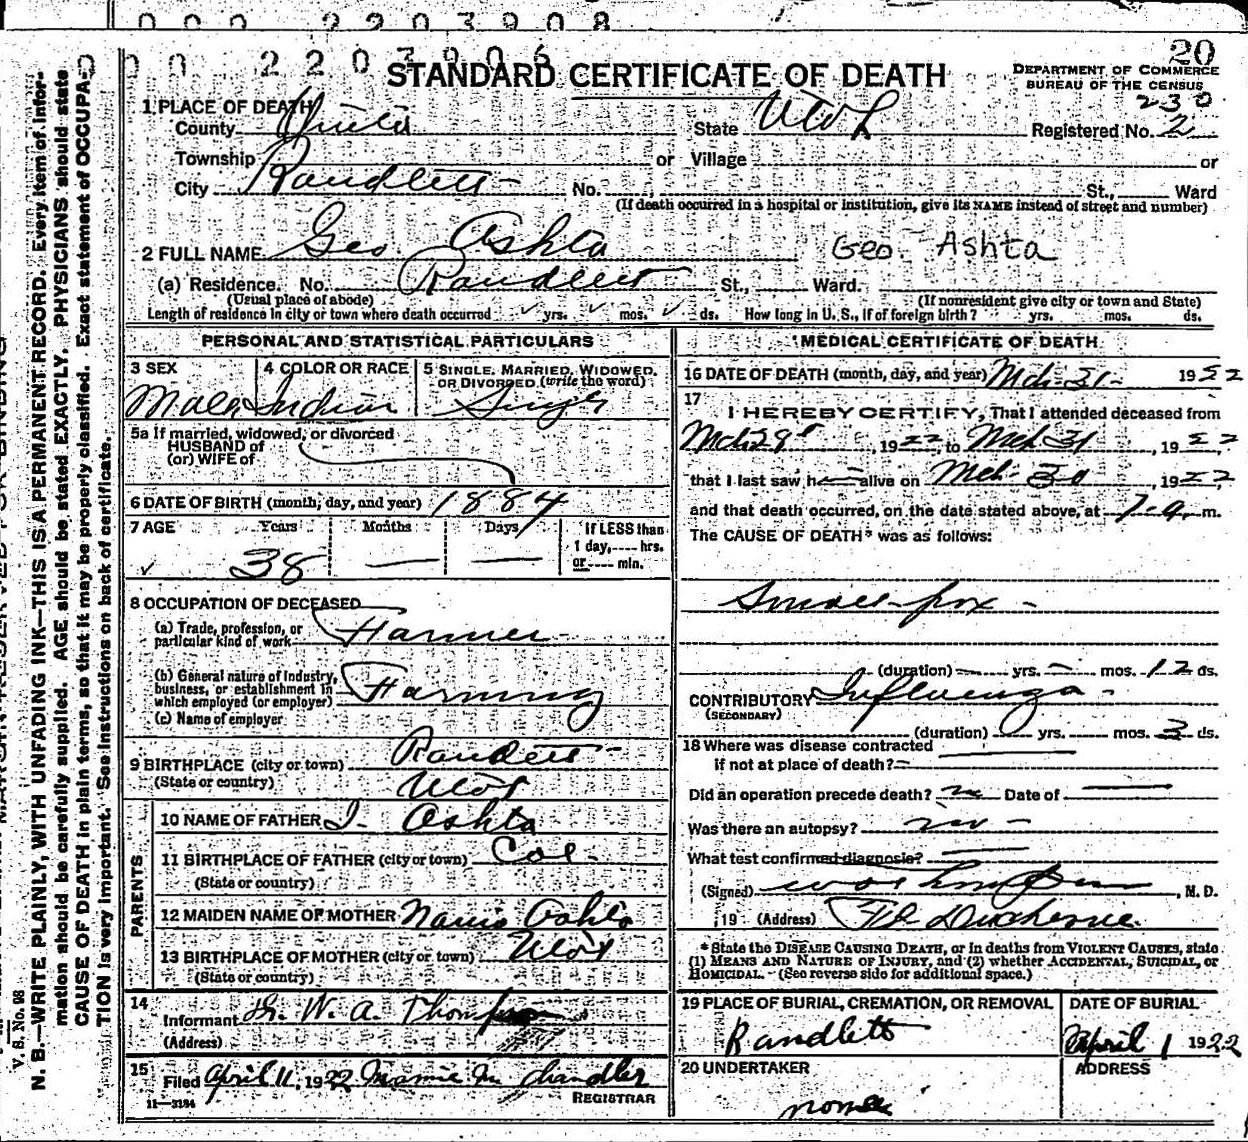 0 0 0 2 2 0 3 9 0 8
0 0 0 2 2 0 3 9 0 6
20
STANDARD CERTIFICATE OF DEATH
DEPARTMENT OF COMMERCE
BUREAU OF THE CENSUS
230
1 PLACE OF DEATH
County State Utah Registered No. 2
Township or Village or
City Randlett No. St., Ward
(If death occurred in a hospital or institution, give its NAME instead of street and number)
2 FULL NAME Geo Ashta Geo. Ashta
(a) Residence. No. Randlett St., Ward.
(Usual place of abode) (If nonresident give city or town and State)
Length of residence in city or town where death occurred yrs. mos. ds. How long in U. S., if of foreign birth? yrs. mos. ds.
PERSONAL AND STATISTICAL PARTICULARS
3 SEX 4 COLOR OR RACE 5 SINGLE, MARRIED, WIDOWED,
OR DIVORCED (write the word)
Male Indian Single
5a If married, widowed, or divorced
HUSBAND of
(or) WIFE of
6 DATE OF BIRTH (month, day, and year) 1884
7 AGE Years Months Days If LESS than
1 day,.... hrs.
or.... min.
38 — —
8 OCCUPATION OF DECEASED
(a) Trade, profession, or
particular kind of work Farmer
(b) General nature of industry,
business, or establishment in
which employed (or employer) Farming
(c) Name of employer
9 BIRTHPLACE (city or town) Randlett
(State or country) Utah
PARENTS
10 NAME OF FATHER J. Ashta
11 BIRTHPLACE OF FATHER (city or town) Col.
(State or country)
12 MAIDEN NAME OF MOTHER Ashta
13 BIRTHPLACE OF MOTHER (city or town) Utah
(State or country)
14
Informant Dr. W. A. Thompson
(Address)
15
Filed April 11, 1922 Mamie M. Chandler
REGISTRAR
11—3184
MEDICAL CERTIFICATE OF DEATH
16 DATE OF DEATH (month, day, and year) Mch 31 - 1922
17
I HEREBY CERTIFY, That I attended deceased from
Mch 29, 1922, to Mch 31, 1922
that I last saw h— alive on Mch 30, 1922,
and that death occurred, on the date stated above, at 7 a. m.
The CAUSE OF DEATH* was as follows:
Small-pox -
(duration) yrs. mos. 12 ds.
CONTRIBUTORY Influenza -
(SECONDARY)
(duration) yrs. mos. 3 ds.
18 Where was disease contracted
if not at place of death?
Did an operation precede death? no Date of
Was there an autopsy? no -
What test confirmed diagnosis?
(Signed) , M. D.
, 19 (Address) Ft Duchesne
* State the DISEASE CAUSING DEATH, or in deaths from VIOLENT CAUSES, state
(1) MEANS AND NATURE OF INJURY, and (2) whether ACCIDENTAL, SUICIDAL, or
HOMICIDAL. (See reverse side for additional space.)
19 PLACE OF BURIAL, CREMATION, OR REMOVAL DATE OF BURIAL
Randlett April 1 1922
20 UNDERTAKER ADDRESS
none
V. S. No. 98
N. B.—WRITE PLAINLY, WITH UNFADING INK—THIS IS A PERMANENT RECORD. Every item of infor-
mation should be carefully supplied. AGE should be stated EXACTLY. PHYSICIANS should state
CAUSE OF DEATH in plain terms, so that it may be properly classified. Exact statement of OCCUPA-
TION is very important. See instructions on back of certificate.